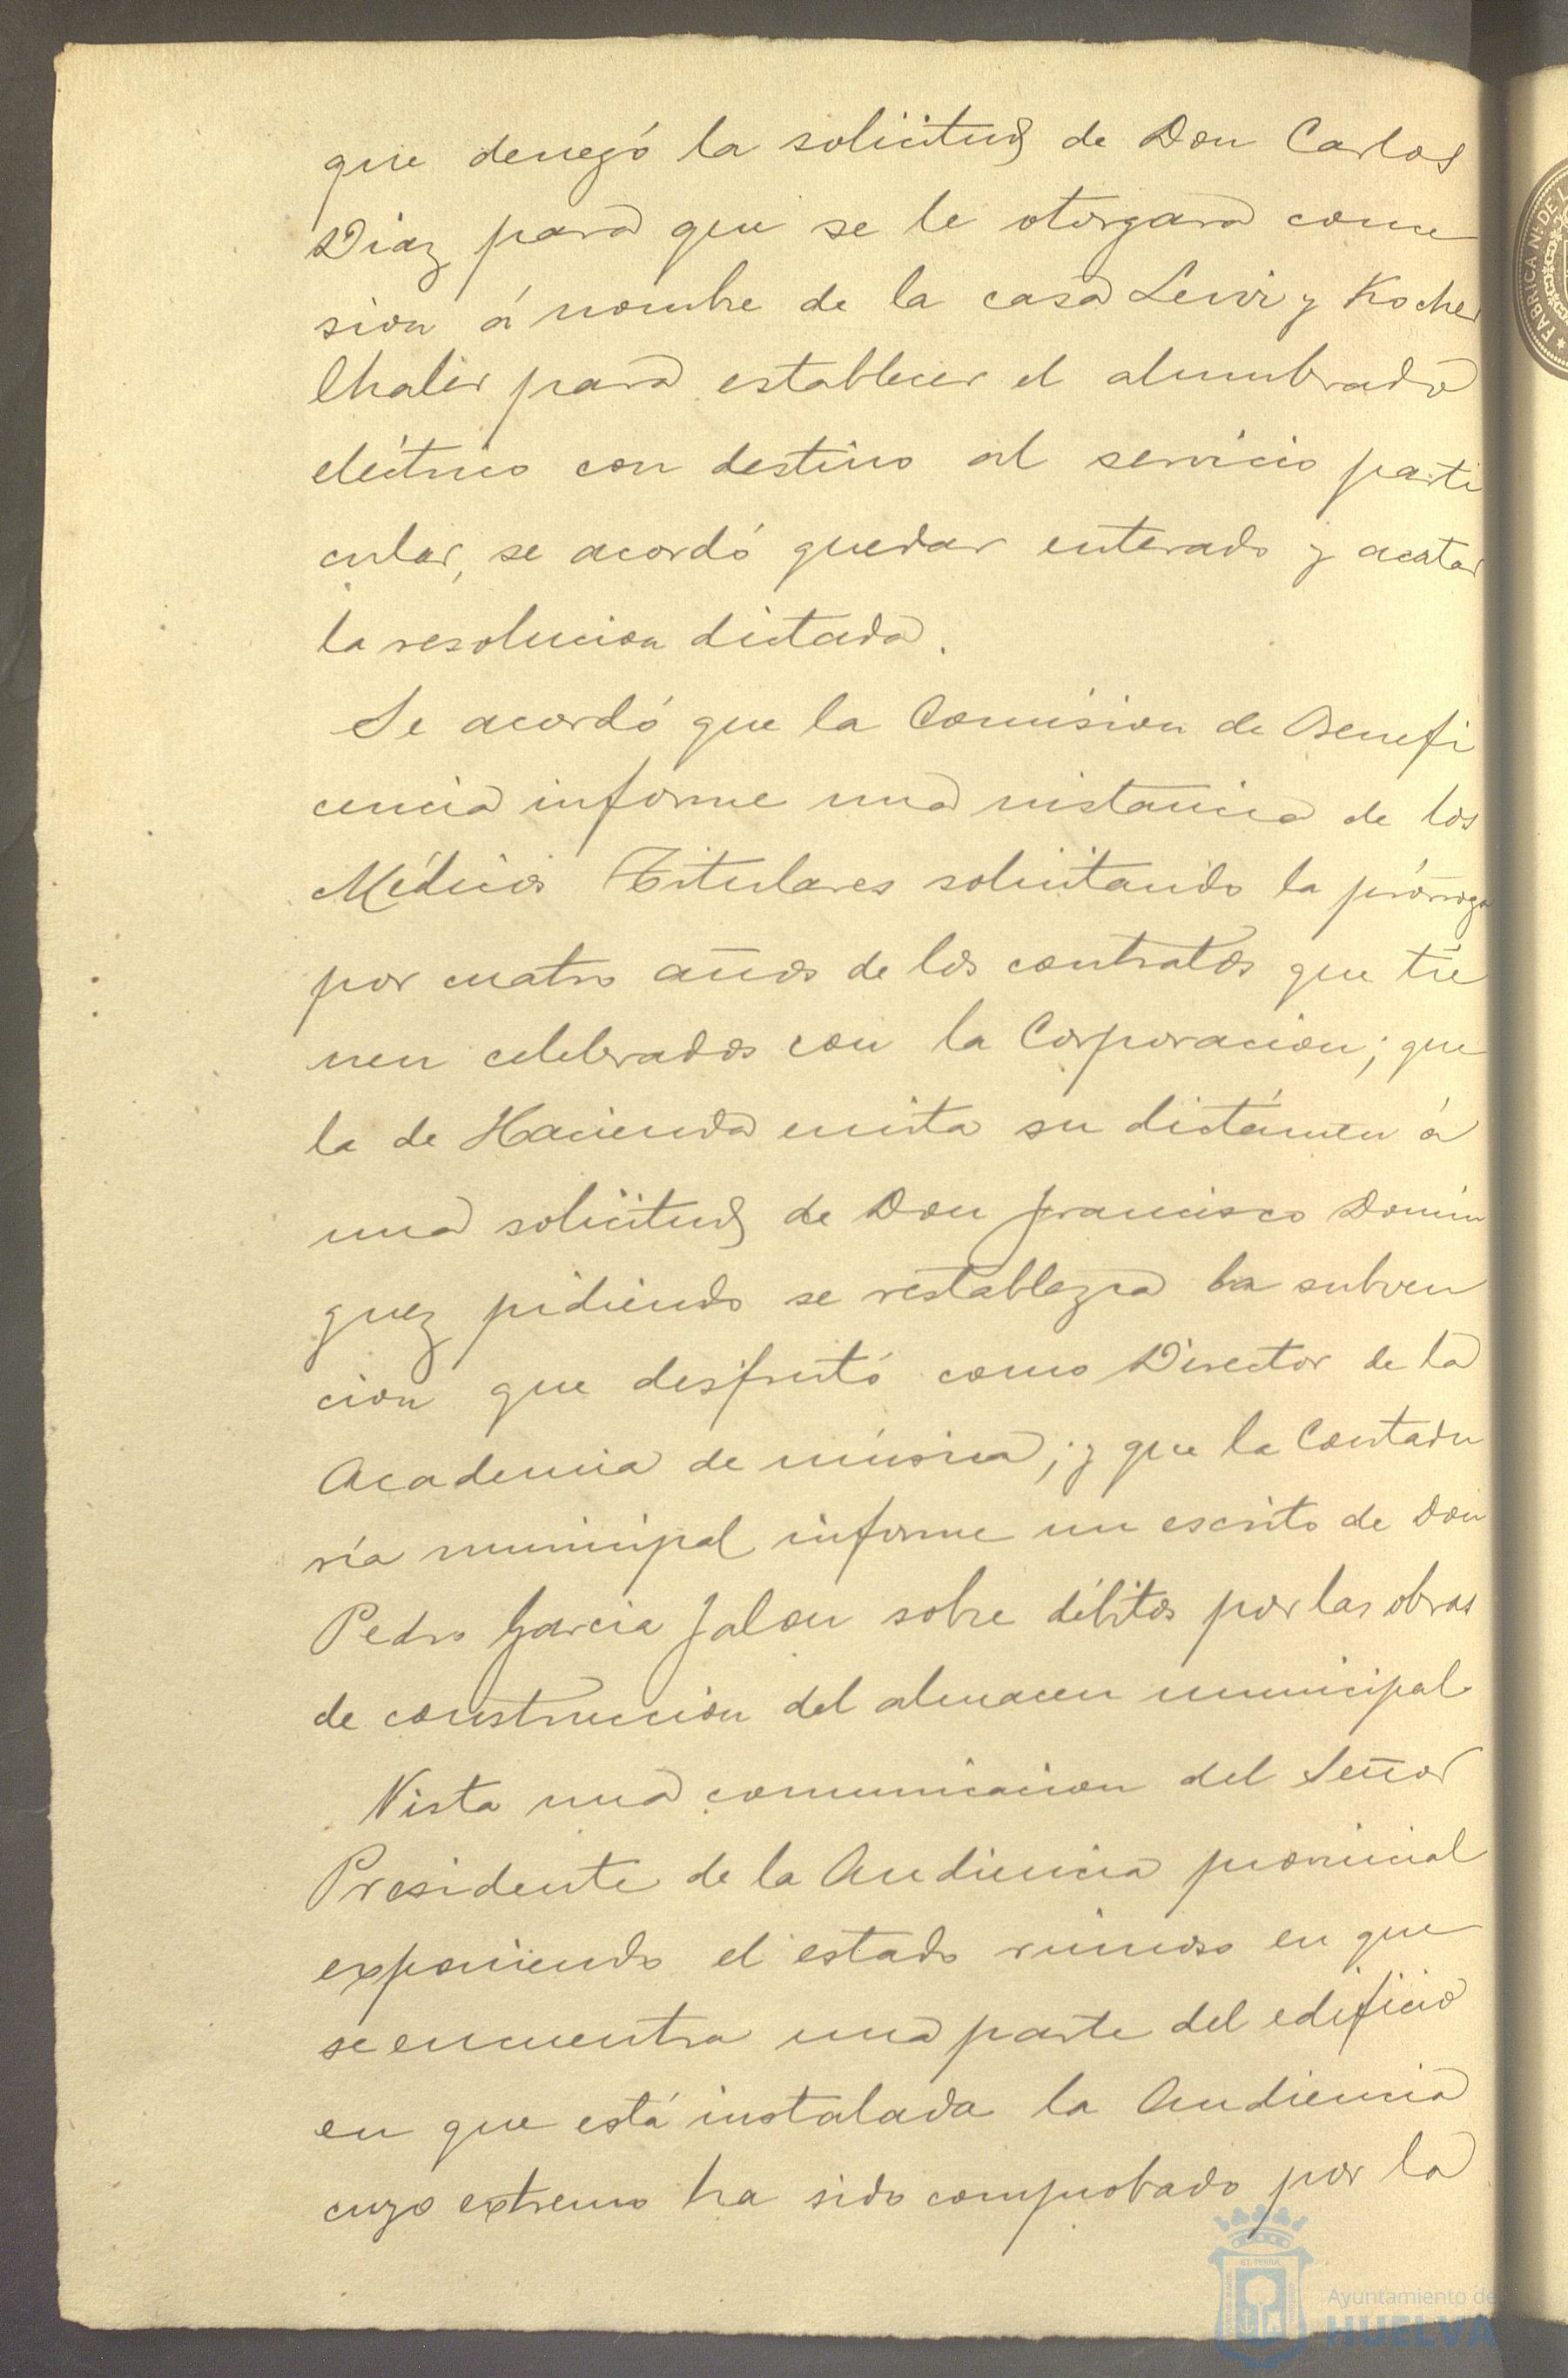 que denegó la solicitud de Don Carlos
Diaz para que se le otorgara conce
sion á nombre de la casa Levi y Kocher
thaler para establecer el alumbrado
eléctrico con destino al servicio parti
cular, se acordó quedar enterado y acatar
la resolucion dictada.
Se acordó que la Comision de Benefi
cencia informe una instancia de los
Médicos Titulares solicitando la prórroga
por cuatro años de los contratos que tie
nen celebrados con la Corporacion; que
la de Hacienda emita su dictámen á
una solicitud de Don Francisco Domin
guez pidiendo se restablezca la subven
cion que desfrutó como Director de la
Academia de música; y que la Contadu
ría municipal informe un escrito de Don
Pedro Garcia Jalon sobre débitos por las obras
de construccion del almacen municipal
Vista una comunicacion del Señor
Presidente de la Audiencia provincial
exponiendo el estado ruinoso en que
se encuentra una parte del edificio
en que está instalada la Audiencia
cuyo extremo ha sido comprobado por la
FABRICA NL DE L
Ayuntamiento de
HUELVA